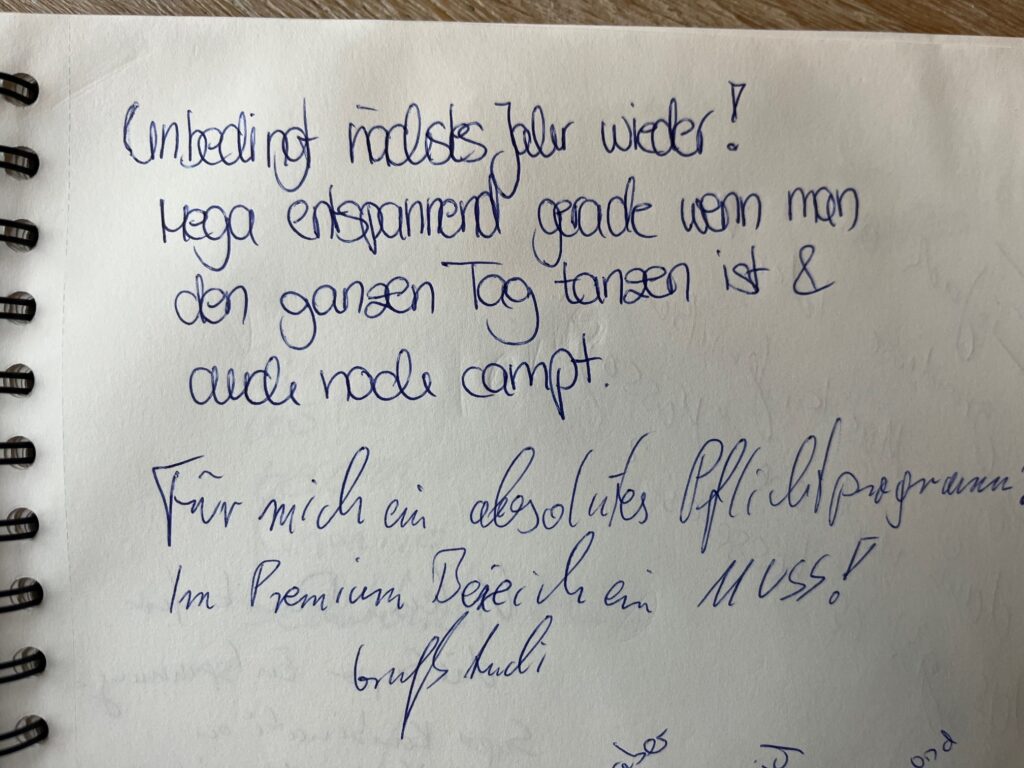 Unbedingt nächstes Jahr wieder!
Mega entspannend gerade wenn man
den ganzen Tag tanzen ist &
auch noch campt.
Für mich ein absolutes Pflichtprogramm!
Im Premium Bereich ein MUSS!
Gruß